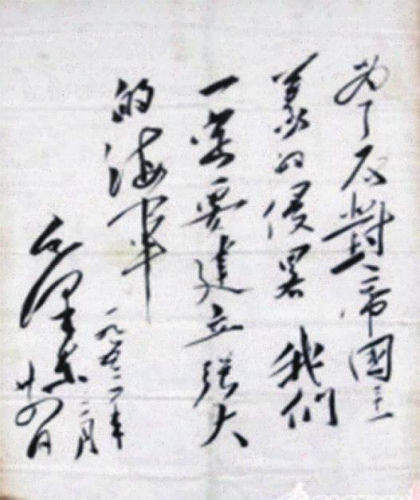 为了反對帝國主
義的侵畧我們
一定要建立強大
的海軍
毛澤東
一九五三年
二月
廿四日